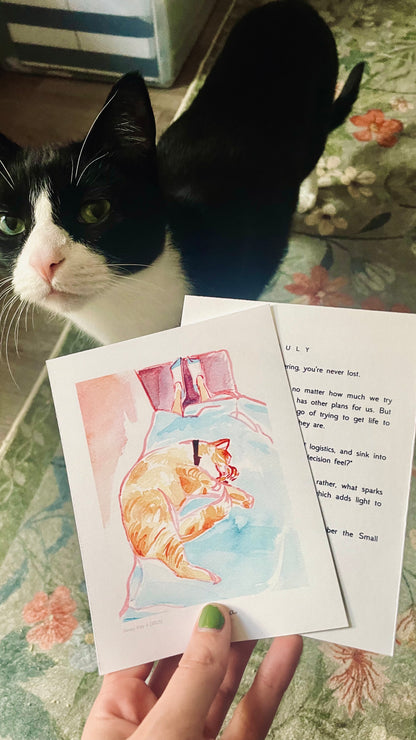 U L Y
ring, you're never lost.
no matter how much we try
has other plans for us. But
go of trying to get life to
hey are.
logistics, and sink into
decision feel?"
rather, what sparks
which adds light to
ber the Small